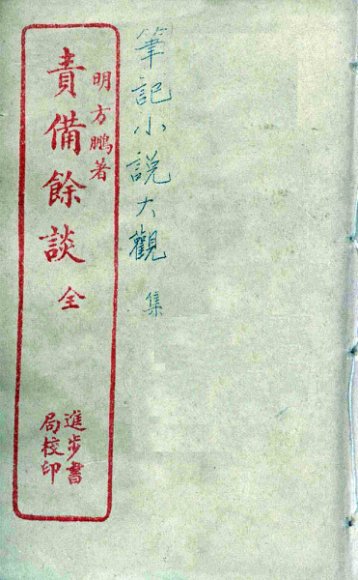 筆記小説大觀 集
明方鵬著
責備餘談 全
進步書
局校印